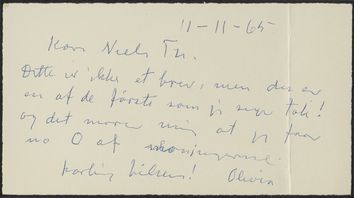 11-11-65
Kære Niels Th.
Dette er ikke et brev, men du er
en af de første som jeg siger tak!
og det morer mig at jeg faar
no 0 af
kærlig hilsen! Olivia